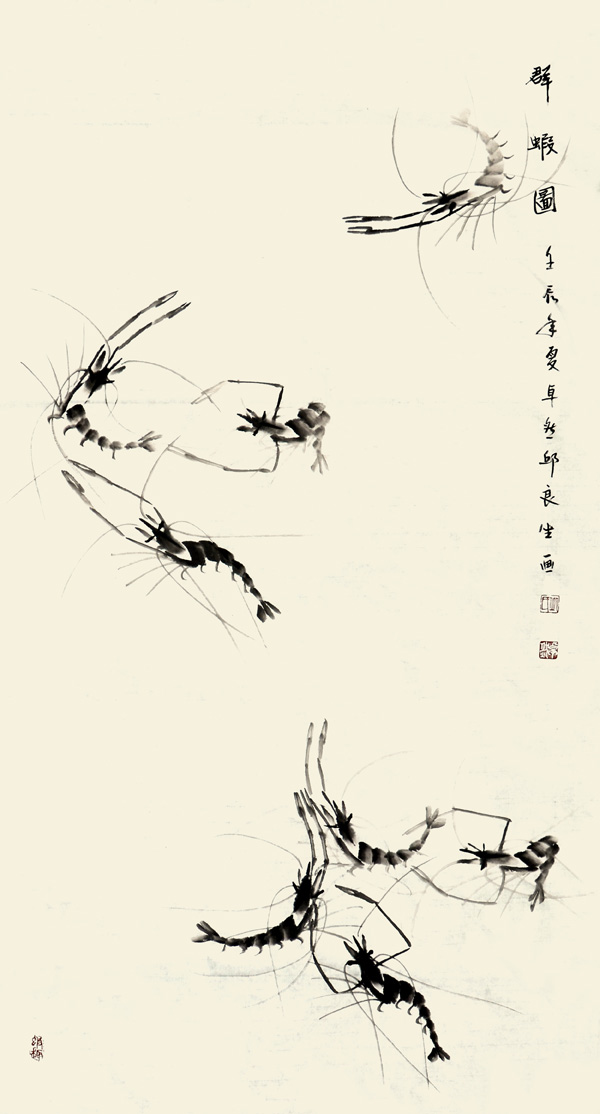 群蝦圖
壬辰年夏卓然邱良生画